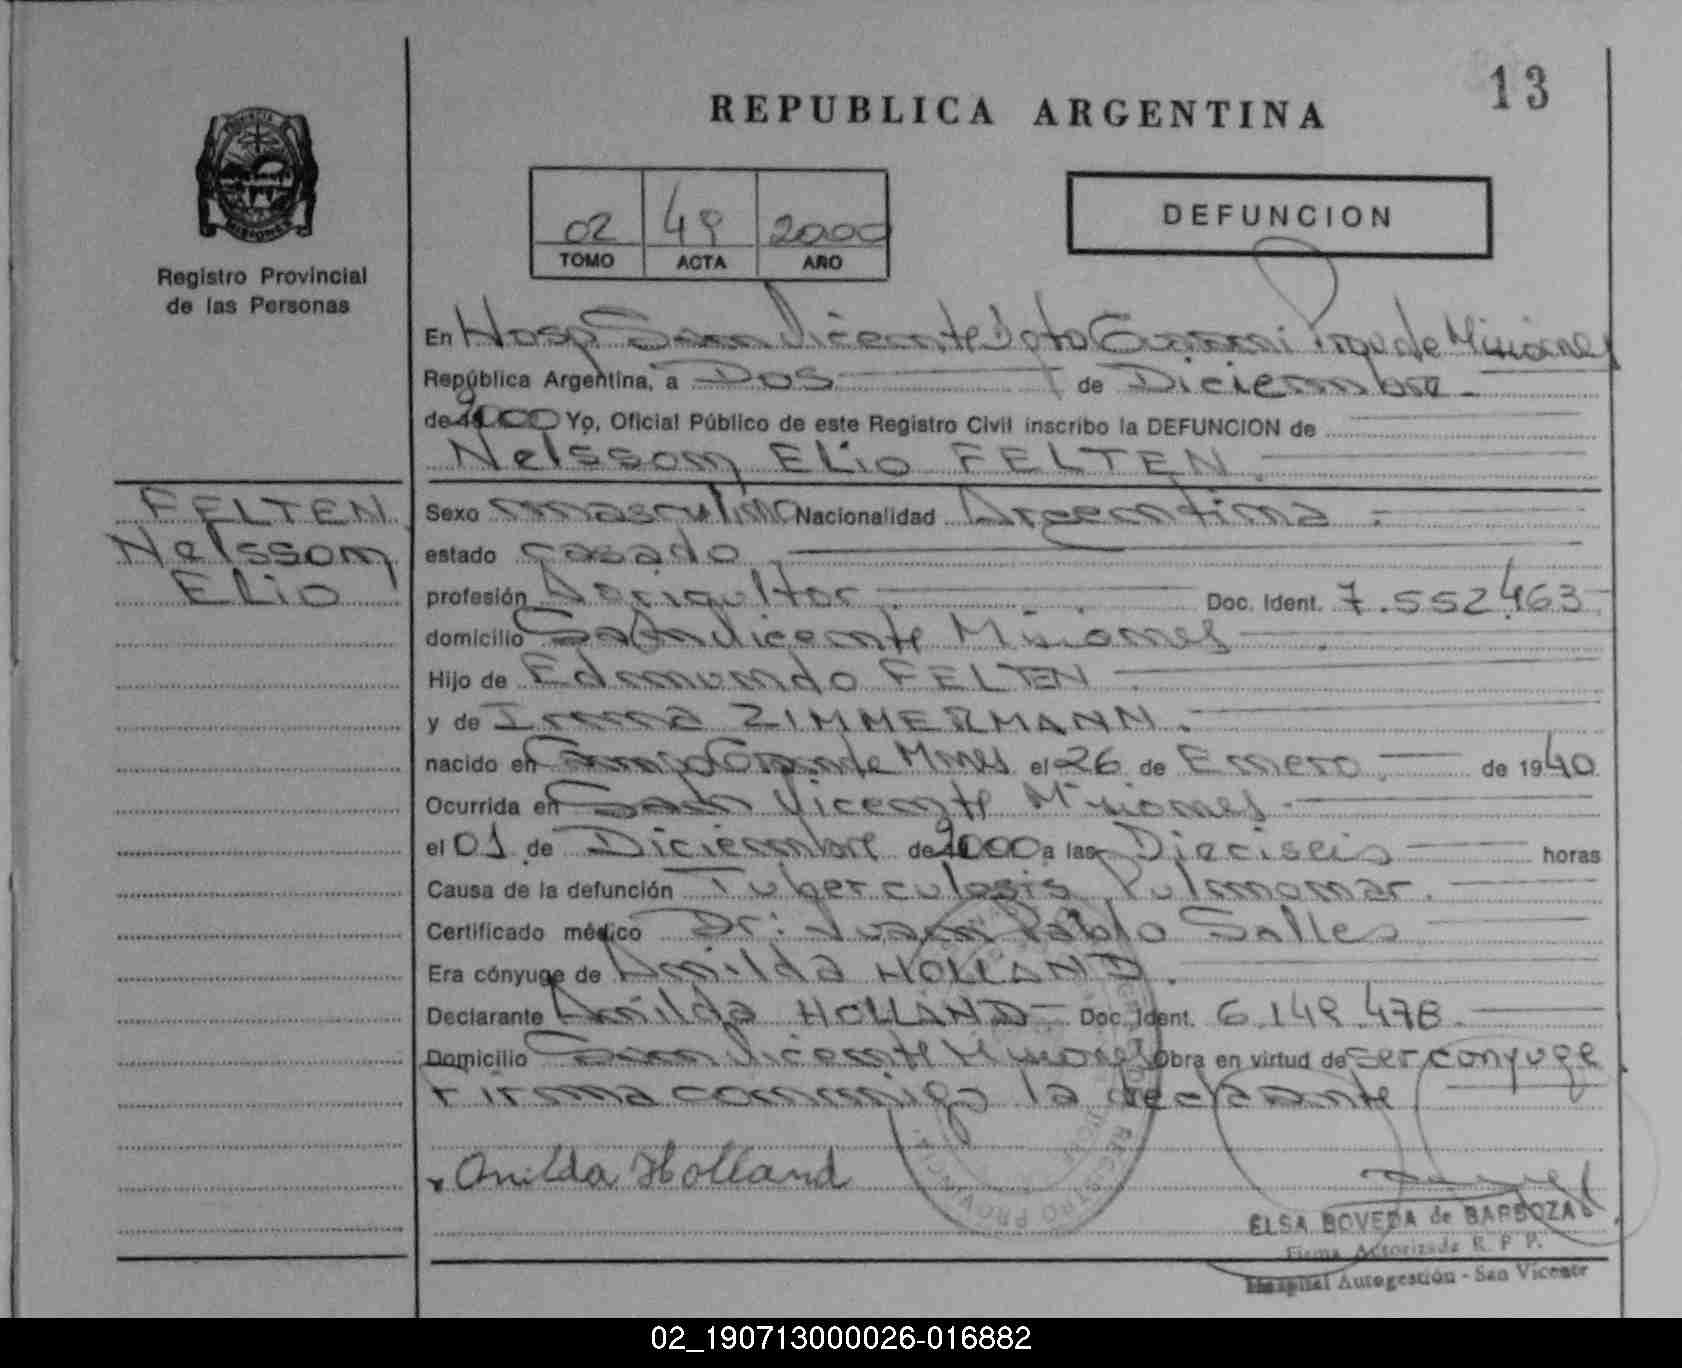 13
REPUBLICA ARGENTINA
MISIONES
Registro Provincial
de las Personas
02 49 2000
TOMO ACTA AÑO
DEFUNCION
En Hosp San Vicente Dpto Guarani Prov de Misiones
República Argentina, a Dos de Diciembre
de 2000 Yo, Oficial Público de este Registro Civil inscribo la DEFUNCION de
Nelssom Elio FELTEN.
FELTEN
Nelssom
Elio
Sexo masculino Nacionalidad Argentina
estado casado
profesión Agriqultor Doc. Ident. 7.552.463
domicilio San Vicente Misiones
Hijo de Edmundo FELTEN
y de Irma ZIMMERMANN.
nacido en Campo Grande Mnes el 26 de Enero de 1940
Ocurrida en San Vicente Misiones
el 01 de Diciembre de 2000 a las Dieciseis horas
Causa de la defunción Tuberculosis Pulmonar.
Certificado médico Dr: Juan Pablo Salles
Era cónyuge de Anilda HOLLAND.
Declarante Anilda HOLLAND Doc. Ident. 6.149.478
Domicilio San Vicente Misiones Obra en virtud de ser conyuge
Firma conmigo la declarante
Onilda Holland
REGISTRO PROVINCIAL
ELSA BOVEDA de BARBOZA
Firma Autorizada R. P. P.
Hospital Autogestión - San Vicente
02_190713000026-016882